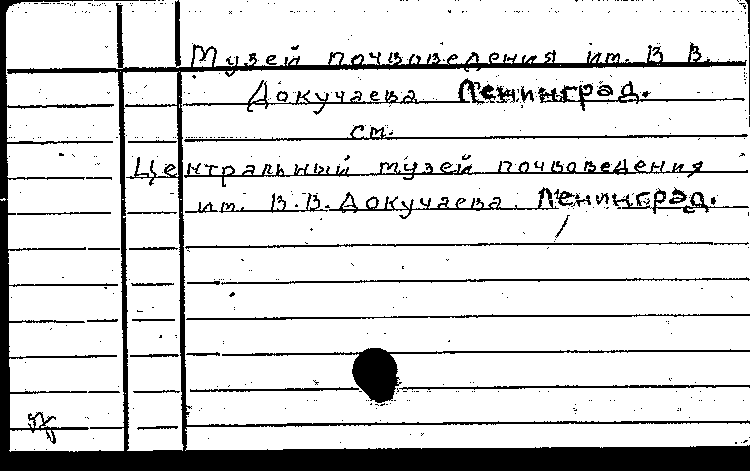 Музей почвоведения им. В В.
Докучаева Ленинград.
см.
Центральный музей почвоведения
им. В.В. Докучаева. Ленинград.